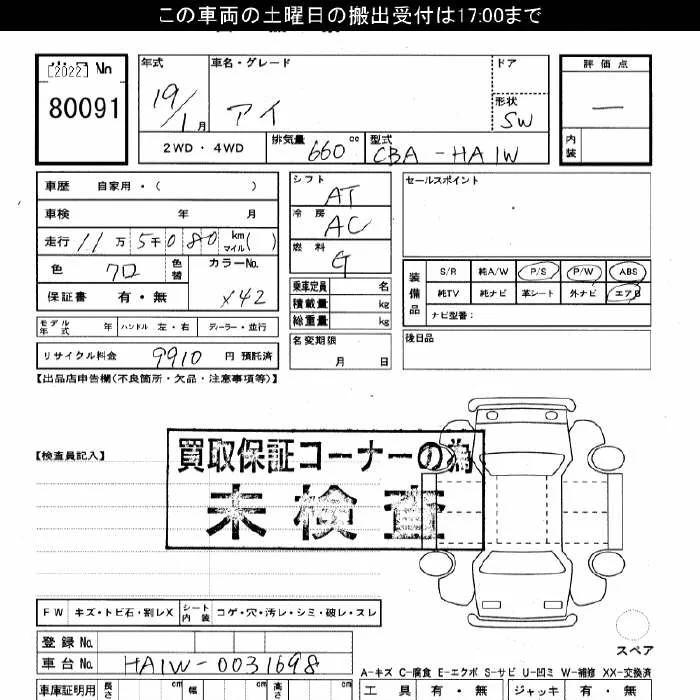 この車両の土曜日の搬出受付は17:00まで
[2022] No
80091
年式 19/1 月
車名・グレード アイ
ドア
形状 SW
評価点 —
内装
2WD・4WD
排気量 660 cc
型式 CBA-HA1W
車歴 自家用・( )
車検 年 月
走行 11万 5千 0 8 0 km マイル ( )
色 クロ 色替 カラーNo. X42
保証書 有・無
モデル年式 年 ハンドル 左・右 ディーラー・並行
リサイクル料金 9910 円 預託済
シフト AT
冷房 AC
燃料 G
乗車定員 名
積載量 kg
総重量 kg
名変期限 月 日
セールスポイント
装備品 S/R 純A/W P/S P/W ABS
純TV 純ナビ 革シート 外ナビ エアB
ナビ型番:
後日品
【出品店申告欄(不良箇所・欠品・注意事項等)】
【検査員記入】
買取保証コーナーの為
未検査
FW キズ・トビ石・割レX シート内装 コゲ・穴・汚レ・シミ・破レ・スレ
登録No.
車台No. HA1W-0031698
スペア
A-キズ C-腐食 E-エクボ S-サビ U-凹ミ W-補修 XX-交換済
車庫証明用 長さ cm 幅 cm 高さ cm
工具 有・無 ジャッキ 有・無